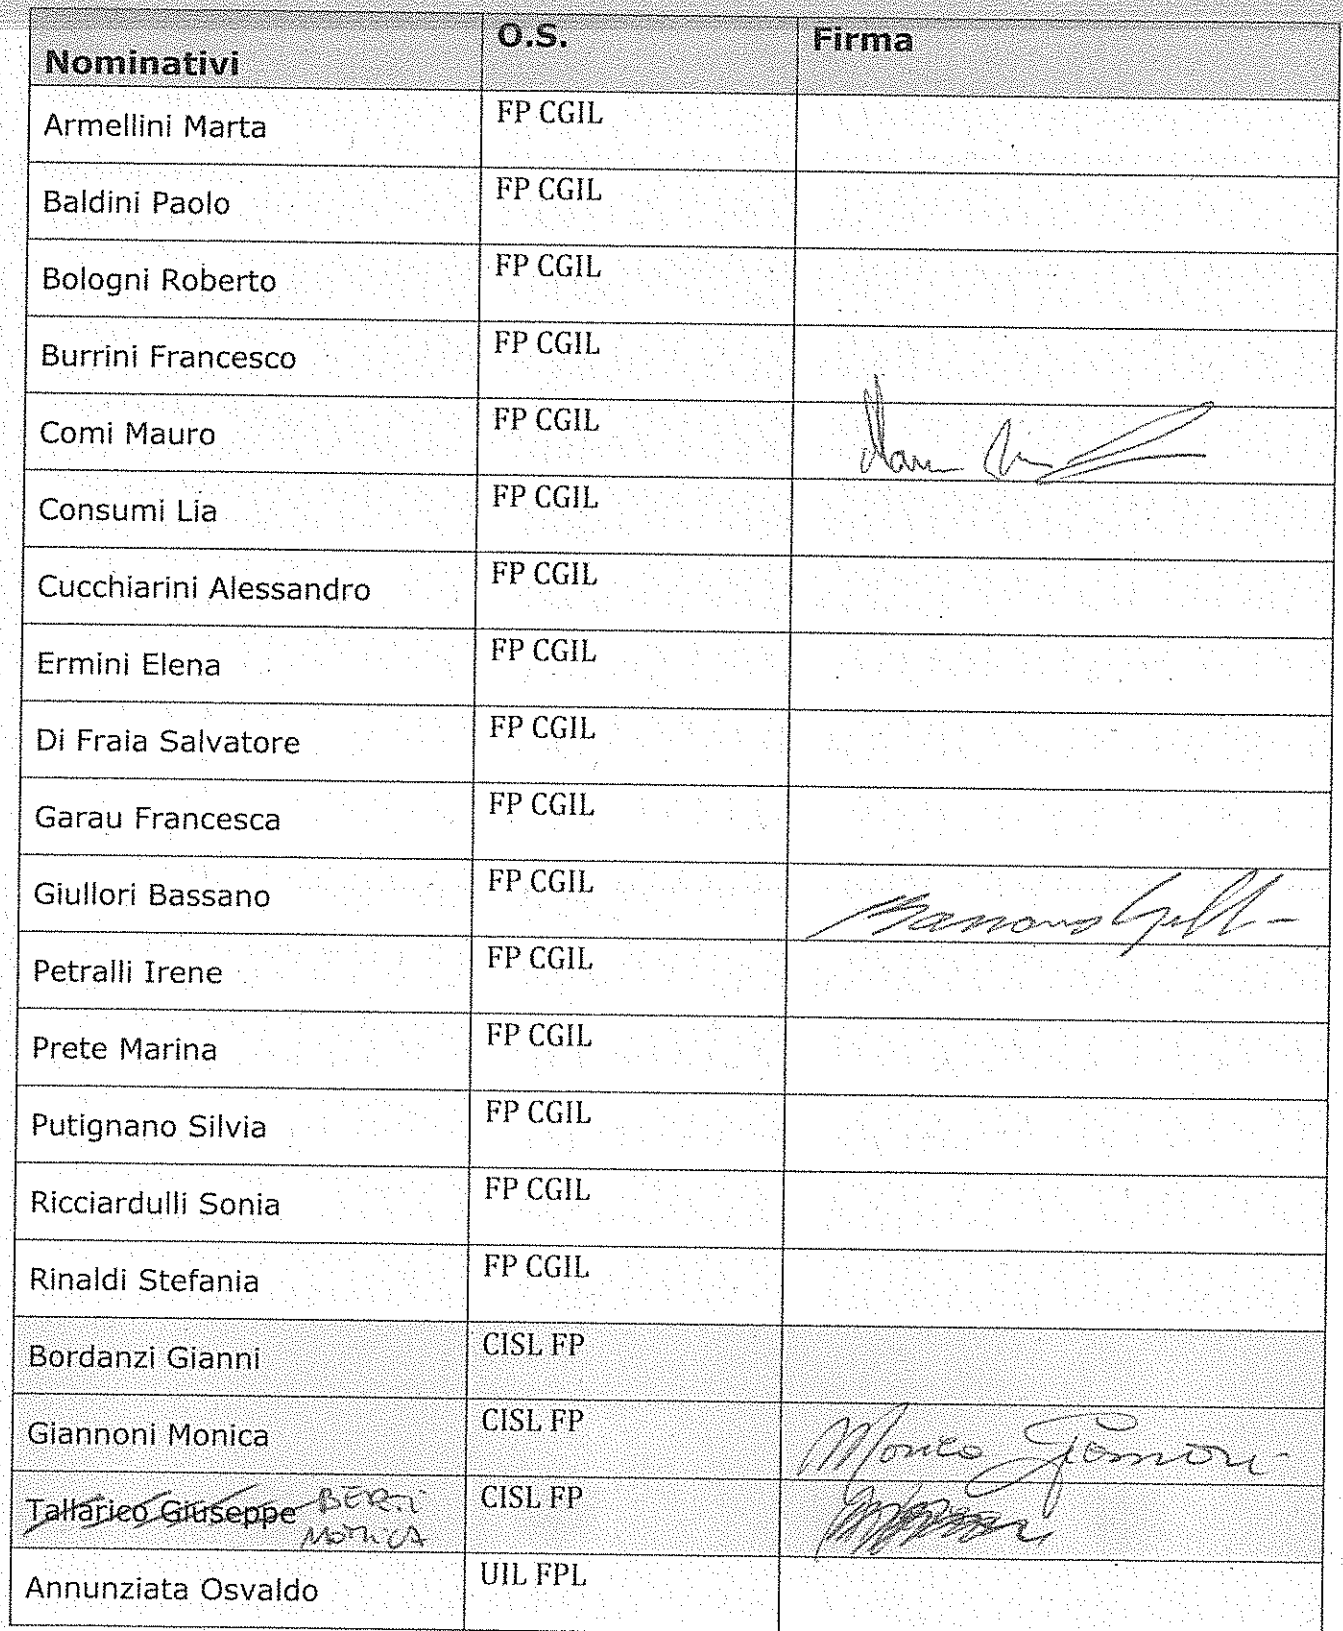 Nominativi O.S. Firma
Armellini Marta FP CGIL
Baldini Paolo FP CGIL
Bologni Roberto FP CGIL
Burrini Francesco FP CGIL
Comi Mauro FP CGIL
Consumi Lia FP CGIL
Cucchiarini Alessandro FP CGIL
Ermini Elena FP CGIL
Di Fraia Salvatore FP CGIL
Garau Francesca FP CGIL
Giullori Bassano FP CGIL
Petralli Irene FP CGIL
Prete Marina FP CGIL
Putignano Silvia FP CGIL
Ricciardulli Sonia FP CGIL
Rinaldi Stefania FP CGIL
Bordanzi Gianni CISL FP
Giannoni Monica CISL FP Monica Giannoni
Tallarico Giuseppe BERTI CISL FP
MONICA
Annunziata Osvaldo UIL FPL